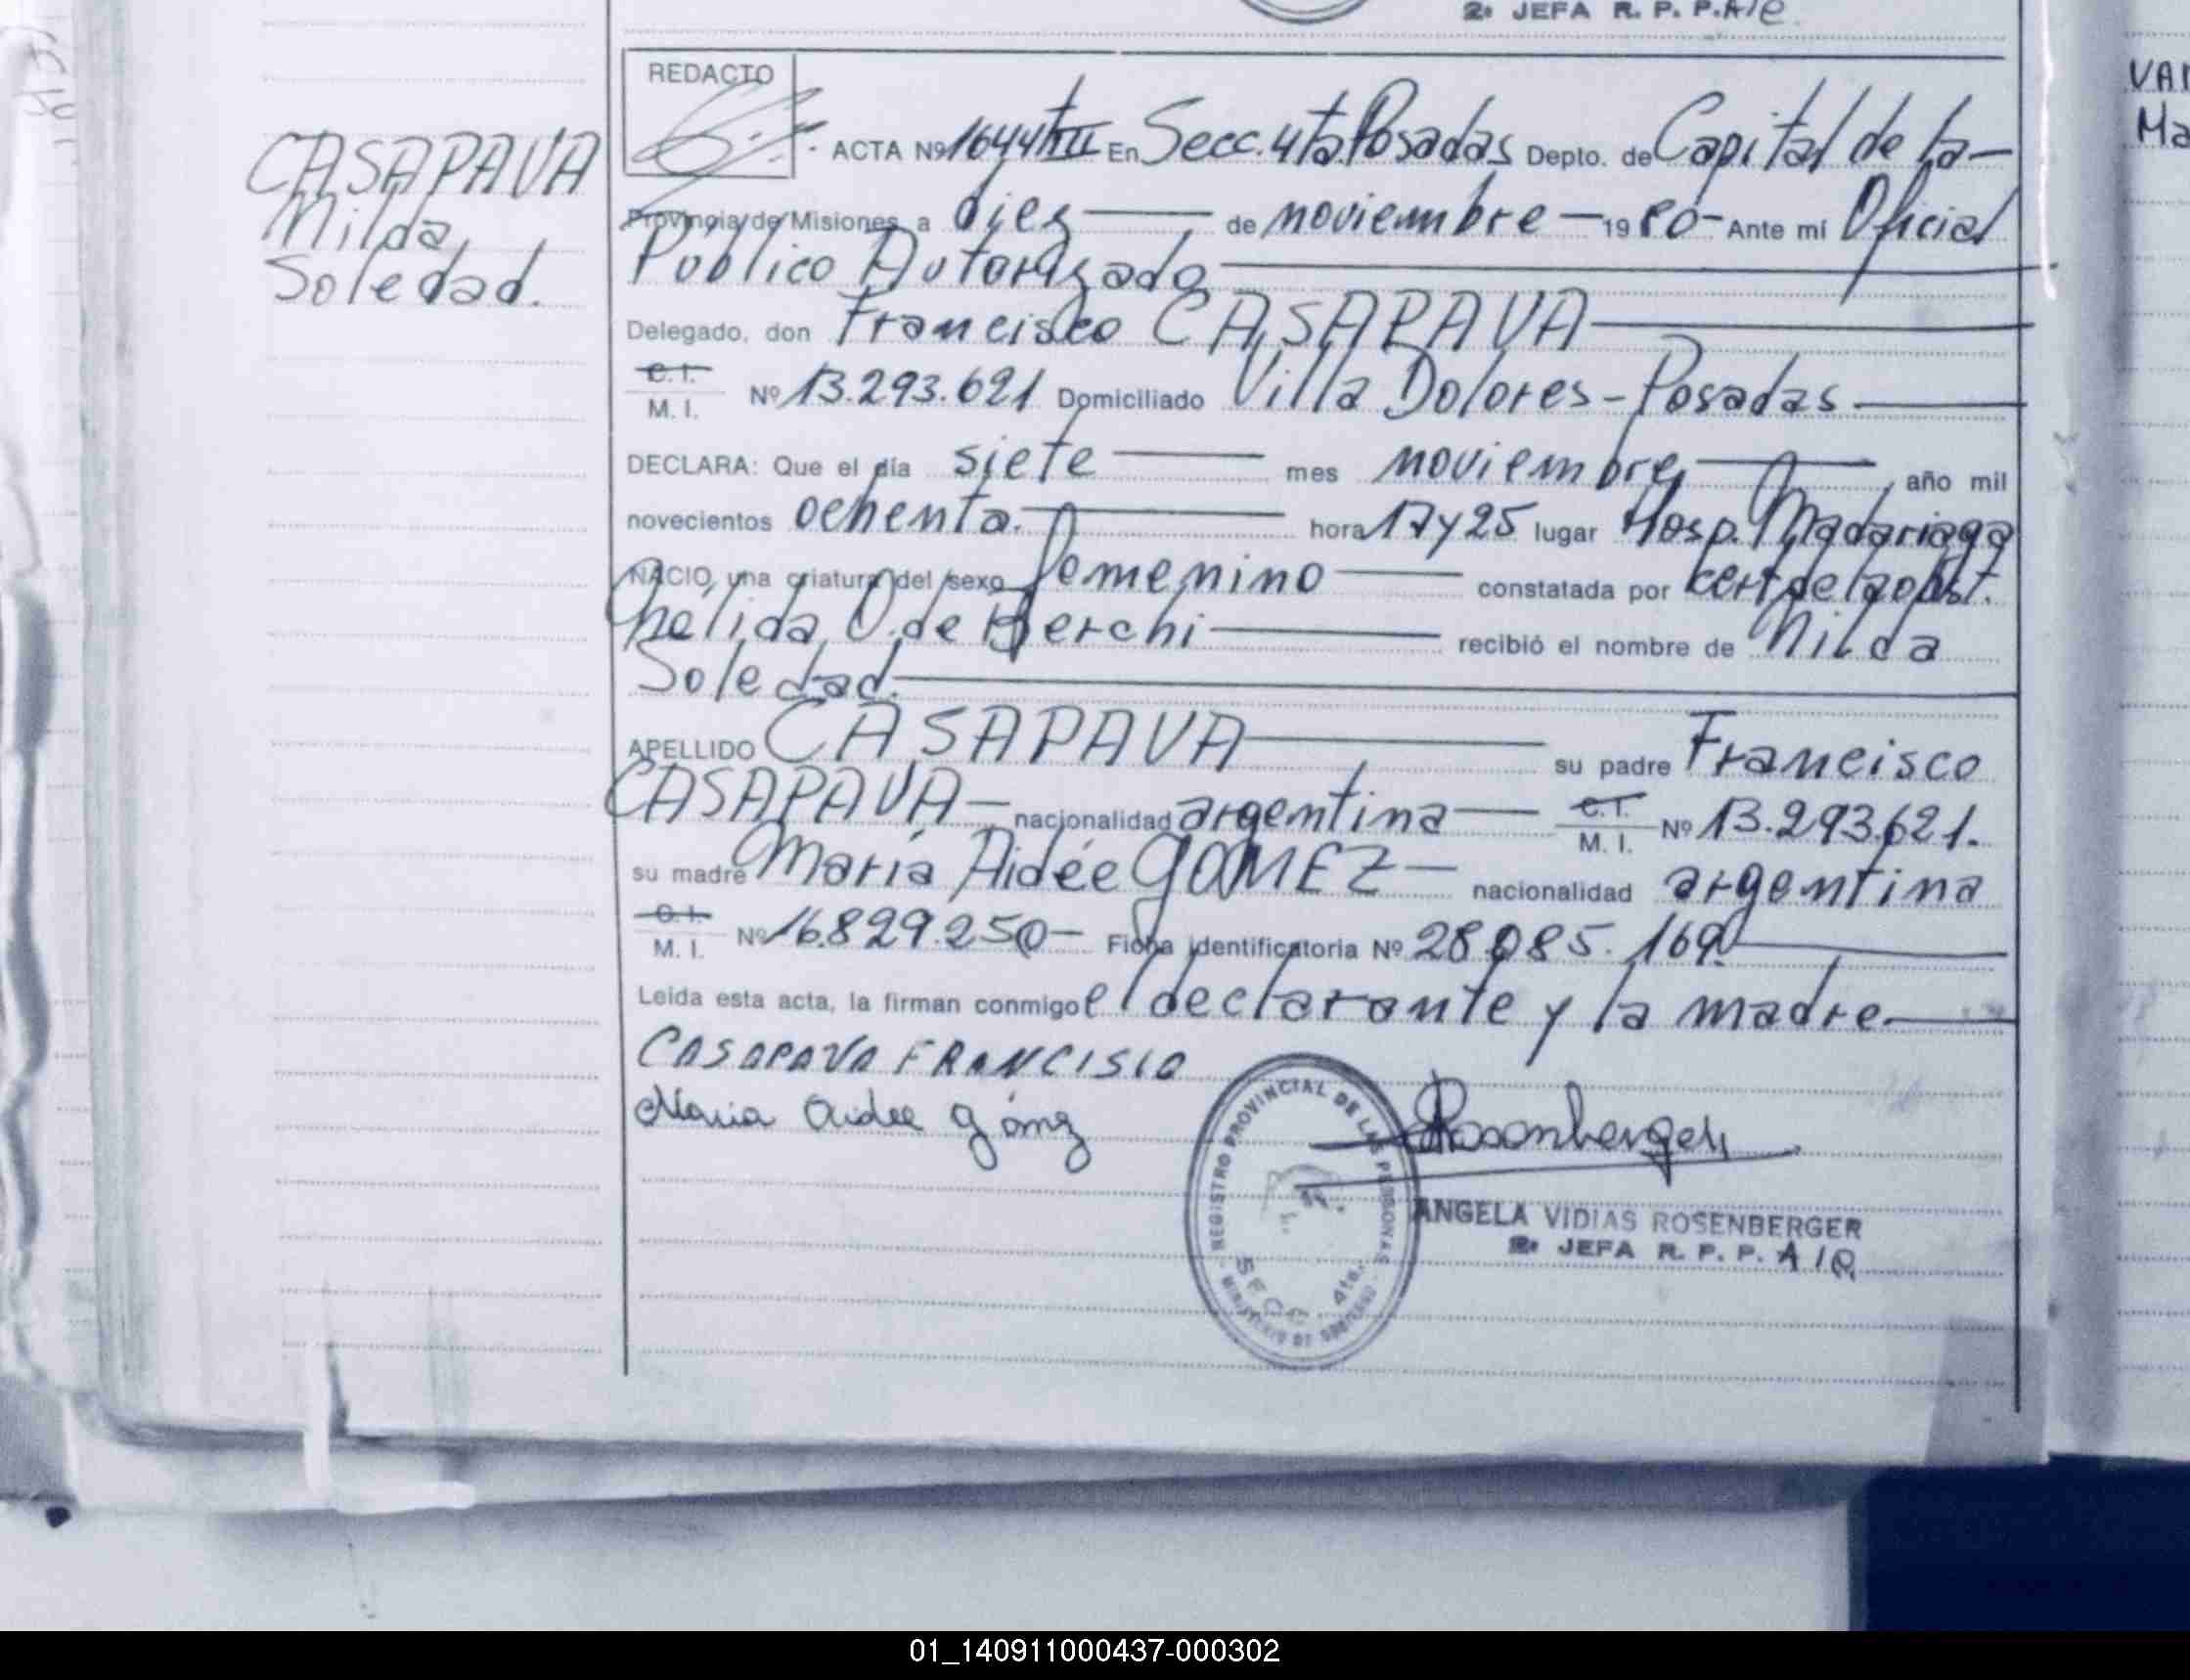 2º JEFA R. P. P. A/C.
REDACTO
CASAPAVA
Nilda
Soledad.
ACTA Nº 1644 tº VII En Secc. 4ta Posadas Depto. de Capital de la
Provincia de Misiones, a diez de noviembre 1980 Ante mí Oficial
Público Autorizado
Delegado, don Francisco CASAPAVA
C. I.
M. I. Nº 13.293.621 Domiciliado Villa Dolores - Posadas
DECLARA: Que el día siete mes noviembre, año mil
novecientos ochenta. hora 17 y 25 lugar Hosp. Madariaga
NACIO, una criatura del sexo femenino constatada por cert. de la obst.
Nélida O. de Berchi recibió el nombre de Nilda
Soledad.
APELLIDO CASAPAVA su padre Francisco
CASAPAVA nacionalidad argentina C. I.
M. I. Nº 13.293.621.
su madre María Aidée GOMEZ nacionalidad argentina
C. I.
M. I. Nº 16.829.250 Ficha identificatoria Nº 28.085.169.
Leída esta acta, la firman conmigo el declarante y la madre.
CASAPAVA FRANCISCO
Maria Aidee Gómez
Rosenberger
REGISTRO PROVINCIAL DE LAS PERSONAS
SECC. 4ta.
MINISTERIO DE GOBIERNO
ANGELA VIDIAS ROSENBERGER
2º JEFA R. P. P. A/C.
VAR
Ma
01_140911000437-000302